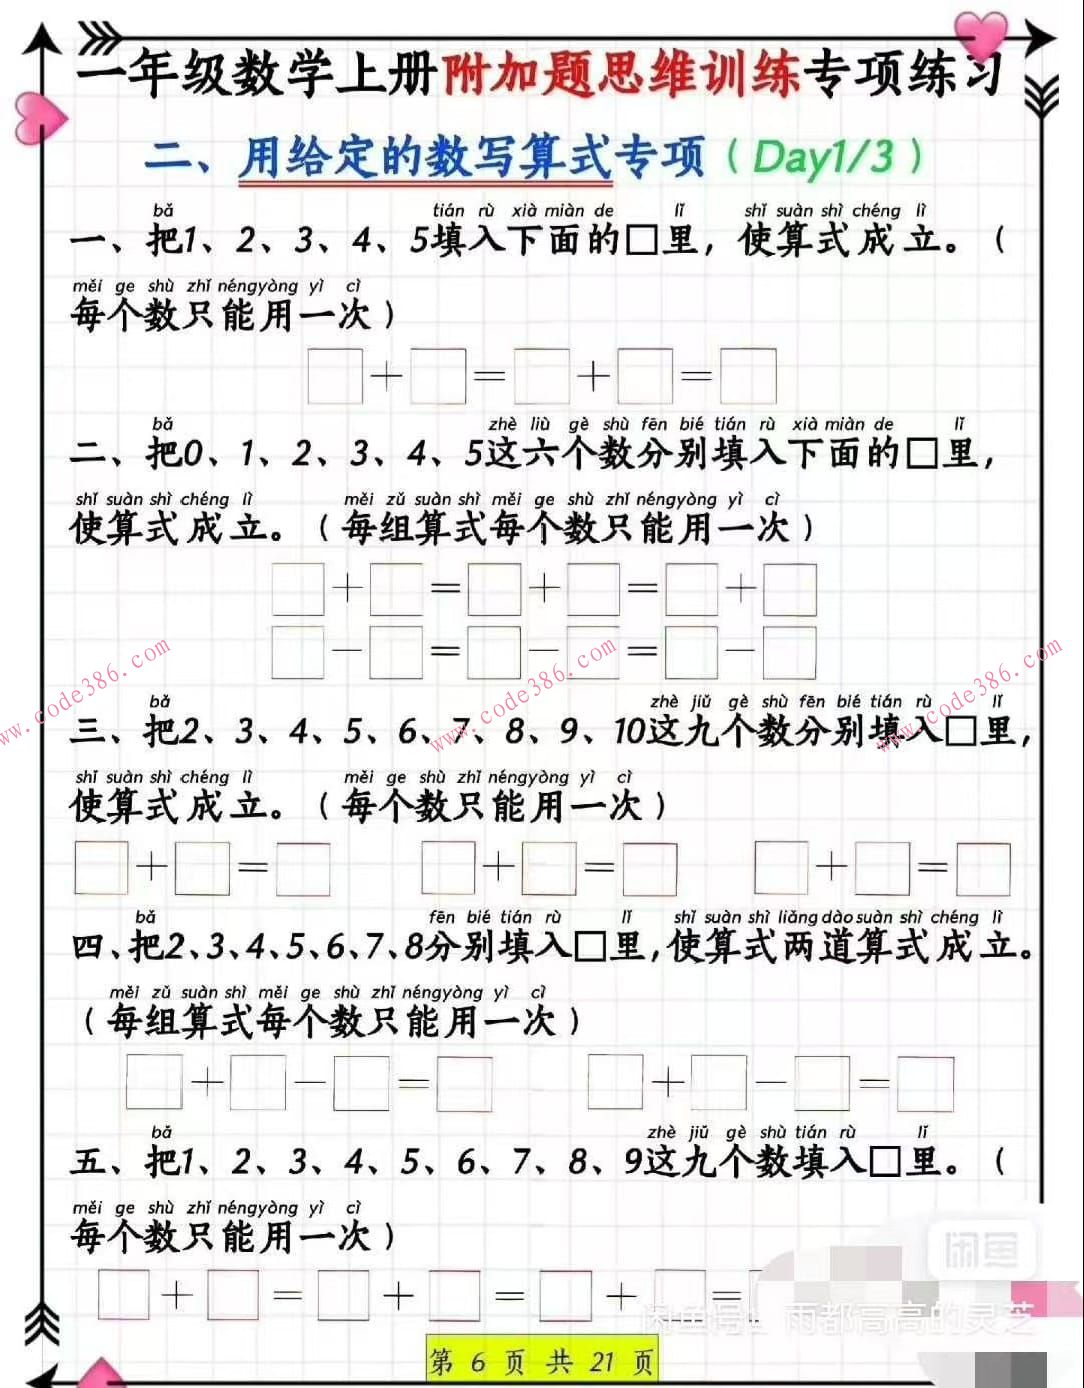 一年级数学上册附加题思维训练专项练习
二、用给定的数写算式专项（Day1/3）
bǎ tián rù xià miàn de lǐ shǐ suàn shì chéng lì
一、把1、2、3、4、5填入下面的□里，使算式成立。（
měi ge shù zhǐ néngyòng yì cì
每个数只能用一次）
□+□=□+□=□
bǎ zhè liù gè shù fēn bié tián rù xià miàn de lǐ
二、把0、1、2、3、4、5这六个数分别填入下面的□里，
shǐ suàn shì chéng lì měi zǔ suàn shì měi ge shù zhǐ néngyòng yì cì
使算式成立。（每组算式每个数只能用一次）
□+□=□+□=□+□
□-□=□-□=□-□
bǎ zhè jiǔ gè shù fēn bié tián rù lǐ
三、把2、3、4、5、6、7、8、9、10这九个数分别填入□里，
shǐ suàn shì chéng lì měi ge shù zhǐ néngyòng yì cì
使算式成立。（每个数只能用一次）
□+□=□ □+□=□ □+□=□
bǎ fēn bié tián rù lǐ shǐ suàn shì liǎng dào suàn shì chéng lì
四、把2、3、4、5、6、7、8分别填入□里，使算式两道算式成立。
měi zǔ suàn shì měi ge shù zhǐ néngyòng yì cì
（每组算式每个数只能用一次）
□+□-□=□ □+□-□=□
bǎ zhè jiǔ gè shù tián rù lǐ
五、把1、2、3、4、5、6、7、8、9这九个数填入□里。（
měi ge shù zhǐ néngyòng yì cì
每个数只能用一次）
□+□=□+□=□+□=□
第 6 页 共 21 页
www.code386.com
www.code386.com
www.code386.com
闲鱼
闲鱼号：雨都高高的灵芝